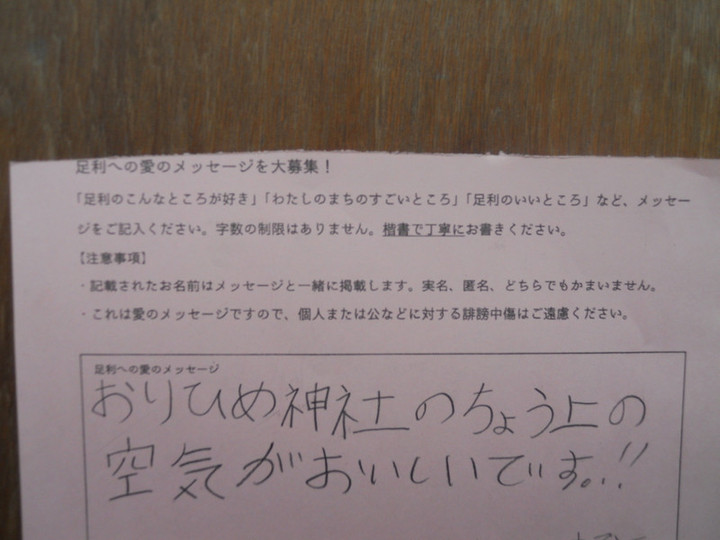 足利への愛のメッセージを大募集！
「足利のこんなところが好き」「わたしのまちのすごいところ」「足利のいいところ」など、メッセー
ジをご記入ください。字数の制限はありません。楷書で丁寧にお書きください。
【注意事項】
・記載されたお名前はメッセージと一緒に掲載します。実名、匿名、どちらでもかまいません。
・これは愛のメッセージですので、個人または公などに対する誹謗中傷はご遠慮ください。
足利への愛のメッセージ
おりひめ神社のちょう上の
空気がおいしいです。!!